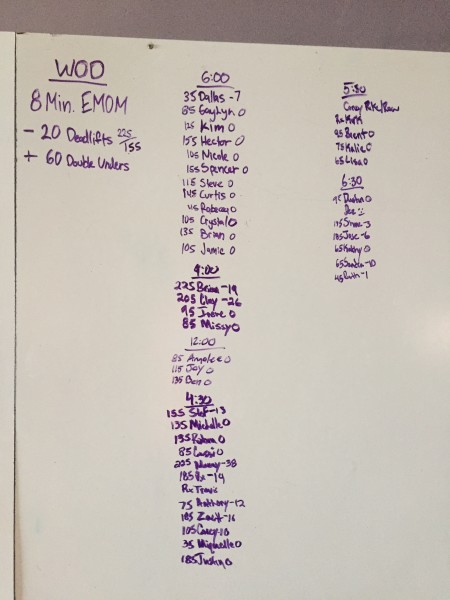 WOD
8 Min. EMOM
- 20 Deadlifts 225/155
+ 60 Double Unders
6:00
35 Dallas - 7
85 Gaylyn 0
125 Kim 0
155 Hector 0
105 Nicole 0
155 Spencer 0
115 Steve 0
145 Curtis 0
115 Rebecca 0
105 Crystal 0
135 Brian 0
105 Jamie 0
9:00
225 Brian - 19
205 Clay - 26
95 0
85 Missy 0
12:00
85 Angelee 0
115 Jay 0
135 Ben 0
4:30
155 Stef - 13
135 Michelle 0
135 0
85 Cassi 0
225 - 38
185 - 19
Rx Travis
75 Anthony - 12
185 Zach - 16
105 Casey - 10
35 Miquelle 0
185 Justin 0
5:30
Corey
Rx
95 Brent 0
75 Kalie 0
65 Lisa 0
6:30
95 0
175 - 3
185 Jose - 6
65 0
65 Sandra - 10
45 Ruth - 1